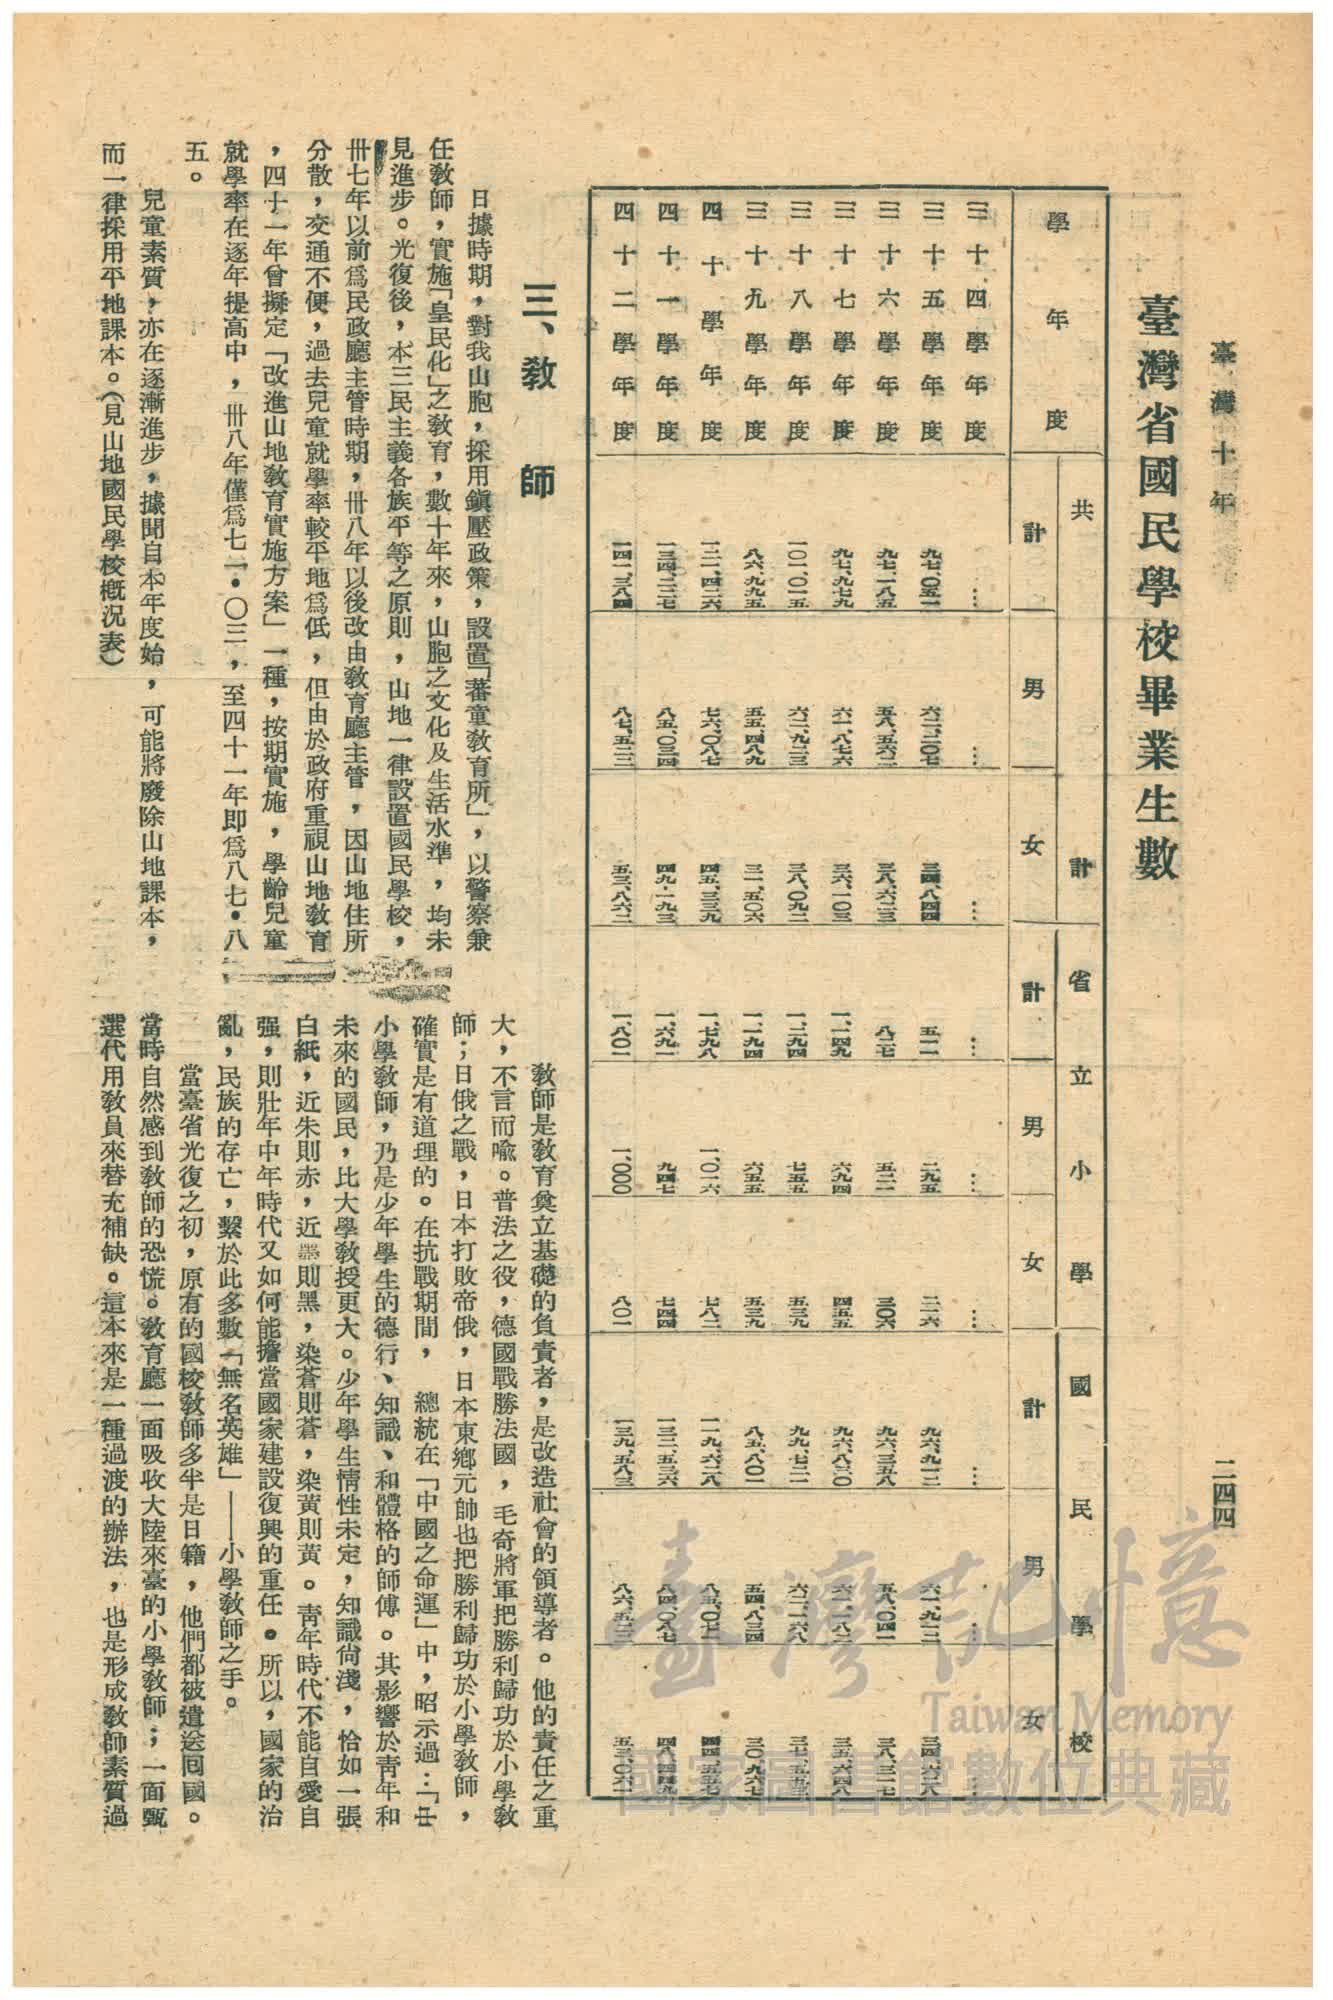 臺灣十年
二四四
臺灣省國民學校畢業生數
學年度 共計 省立小學 國民學校
計 男 女 計 男 女 計 男 女
三十四學年度 … … … … … … … … …
三十五學年度 九七、〇五一 六二、二〇七 三四、八四四 五一一 二九五 二一六 六一、九一二 三四、六二八
三十六學年度 九七、一八五 五八、五六二 三八、六二三 八二七 五二一 三〇六 九六、三五八 五八、〇四一 三八、三一七
三十七學年度 九七、九七九 六一、八七六 三六、一〇三 一、一四九 六九四 四五五 九六、八三〇 六一、一八二 三五、六四八
三十八學年度 一〇一、〇一五 六二、九二三 三八、〇九二 一、二九四 七五五 五三九 九九、七二一 六二、一六八 三七、五五三
三十九學年度 八六、九九五 五五、四八九 三一、五〇六 一、一九四 六五五 五三九 八五、八〇一 五四、八三四 三〇、九六七
四十學年度 一二一、四二六 七六、〇八七 四五、三三九 一、七九八 一、〇一六 七八二 一一九、六二八 八五、〇七一 四四、五五七
四十一學年度 一三四、二二七 八五、〇三四 四九、一九三 一、六九一 九四七 七四四 一三二、五三六 八四、〇八七 四八、四四九
四十二學年度 一四一、三八四 八七、五二三 五三、八六二 一、八〇一 一、〇〇〇 八〇一 一三九、五八三 八六、五二三 五三、〇六一
三、教師
日據時期，對我山胞，採用鎭壓政策，設置「蕃童教育所」，以警察兼
任教師，實施「皇民化」之教育，數十年來，山胞之文化及生活水準，均未
見進步。光復後，本三民主義各族平等之原則，山地一律設置國民學校，
卅七年以前爲民政廳主管時期，卅八年以後改由教育廳主管，因山地住所
分散，交通不便，過去兒童就學率較平地爲低，但由於政府重視山地教育
，四十一年曾擬定「改進山地教育實施方案」一種，按期實施，學齡兒童
就學率在逐年提高中，卅八年僅爲七一・〇三，至四十一年即爲八七・八
五。
兒童素質，亦在逐漸進步，據聞自本年度始，可能將廢除山地課本，
而一律採用平地課本。（見山地國民學校概況表）
教師是教育奠立基礎的負責者，是改造社會的領導者。他的責任之重
大，不言而喩。普法之役，德國戰勝法國，毛奇將軍把勝利歸功於小學教
師；日俄之戰，日本打敗帝俄，日本東鄉元帥也把勝利歸功於小學教師，
確實是有道理的。在抗戰期間，　總統在「中國之命運」中，昭示過：「……
小學教師，乃是少年學生的德行、知識、和體格的師傅。其影響於靑年和
未來的國民，比大學教授更大。少年學生情性未定，知識尙淺，恰如一張
白紙，近朱則赤，近墨則黑，染蒼則蒼，染黃則黃。靑年時代不能自愛自
强，則壯年中年時代又如何能擔當國家建設復興的重任。所以，國家的治
亂，民族的存亡，繫於此多數「無名英雄」——小學教師之手。
當臺省光復之初，原有的國校教師多半是日籍，他們都被遣送囘國。
當時自然感到教師的恐慌。教育廳一面吸收大陸來臺的小學教師；一面甄
選代用教員來替充補缺。這本來是一種過渡的辦法，也是形成教師素質過
臺灣記憶
Taiwan Memory
國家圖書館數位典藏